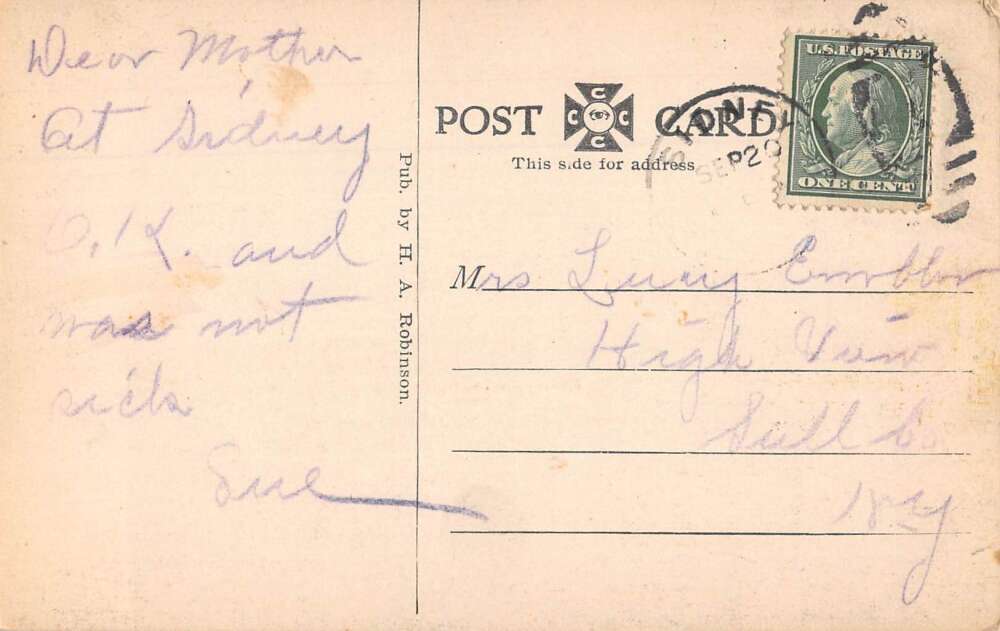 Dear Mother
At Sidney
O.K. and
was not
sick
Sue
Pub. by H. A. Robinson.
POST CARD
C C C C
This side for address
SIDNEY
SEP 20
U.S. POSTAGE
ONE CENT
Mrs Lucy
High View
Sull Co
NY